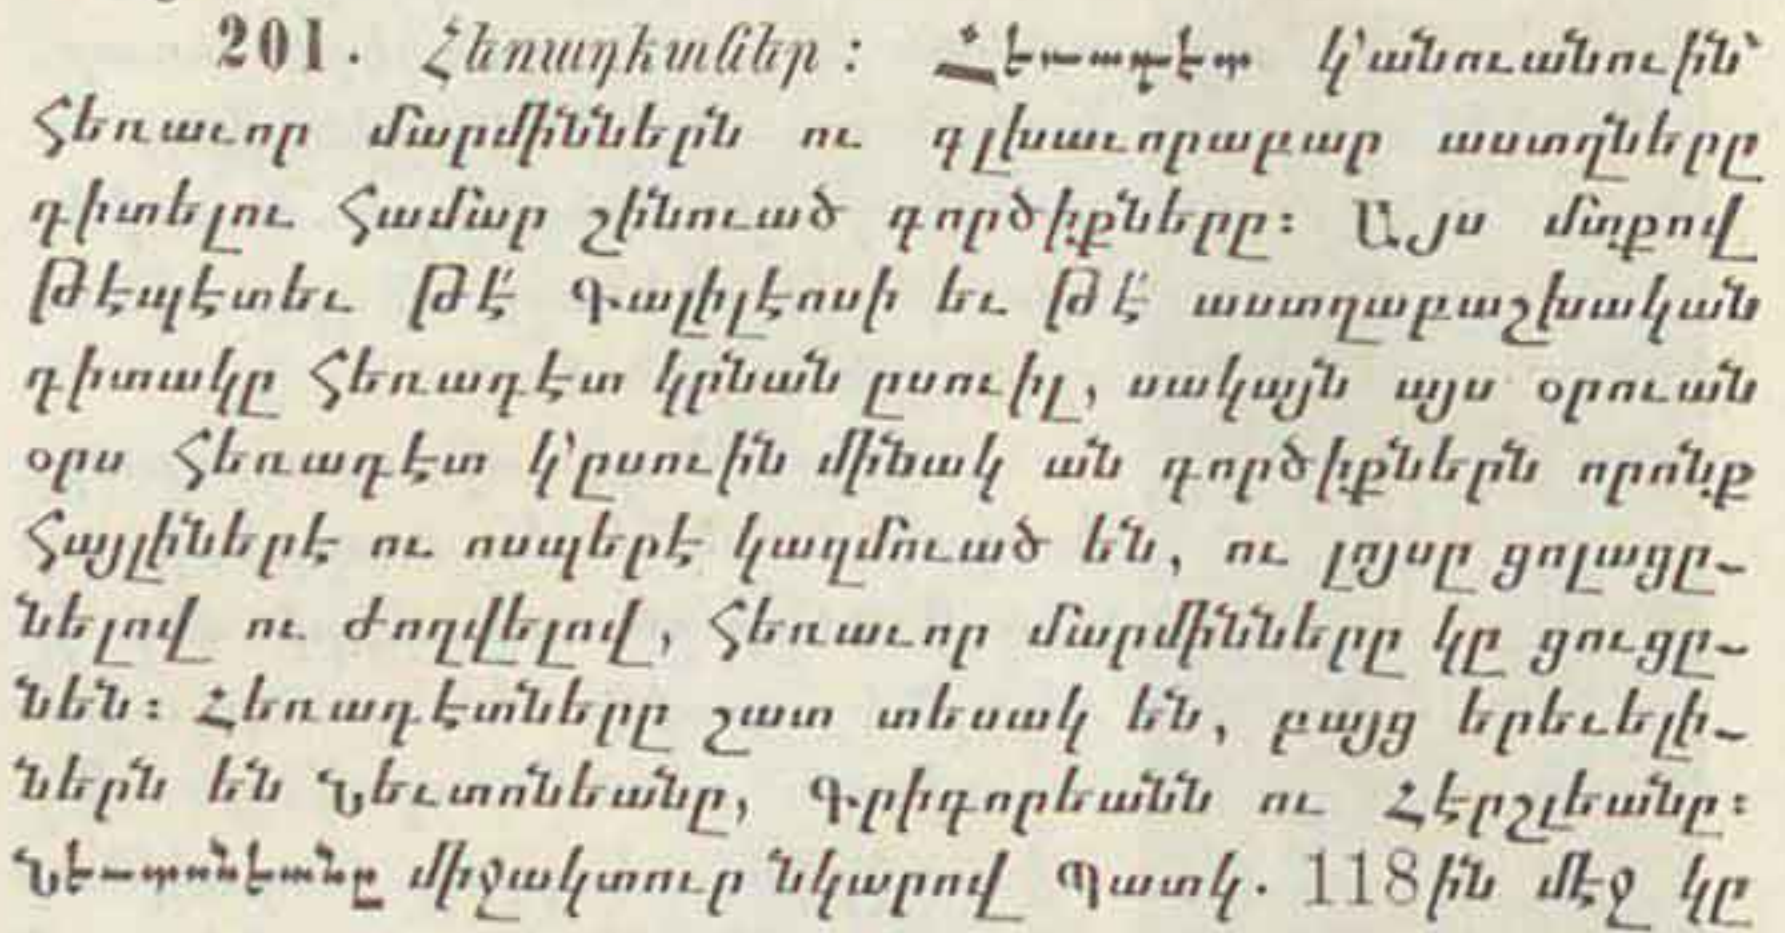 201. Հեռադետններ։ Հեռադէտ կ՚անուանուին՝
հեռաւոր մարմիններն ու գլխաւորաբար աստղները
դիտելու համար շինուած գործիքները։ Այս մտքով
թէպէտեւ թէ՛ Գալիլէոսի եւ թէ՛ աստղաբաշխական
դիտակը հեռադէտ կրնան ըսուիլ, սակայն այս օրուան
օրս հեռադէտ կ՚ըսուին մինակ ան գործիքներն որոնք
հայլիներէ ու ոսպերէ կազմուած են, ու լոյսը ցոլացը-
նելով ու ժողվելով, հեռաւոր մարմինները կը ցուցը-
նեն։ Հեռադէտները շատ տեսակ են, բայց երեւելի-
ներն են Նեւտոնեանը, Գրիգորեանն ու Հէրշլեանը։
Նեւտոնեանը միջակտուր նկարով Պատկ. 118ին մէջ կը